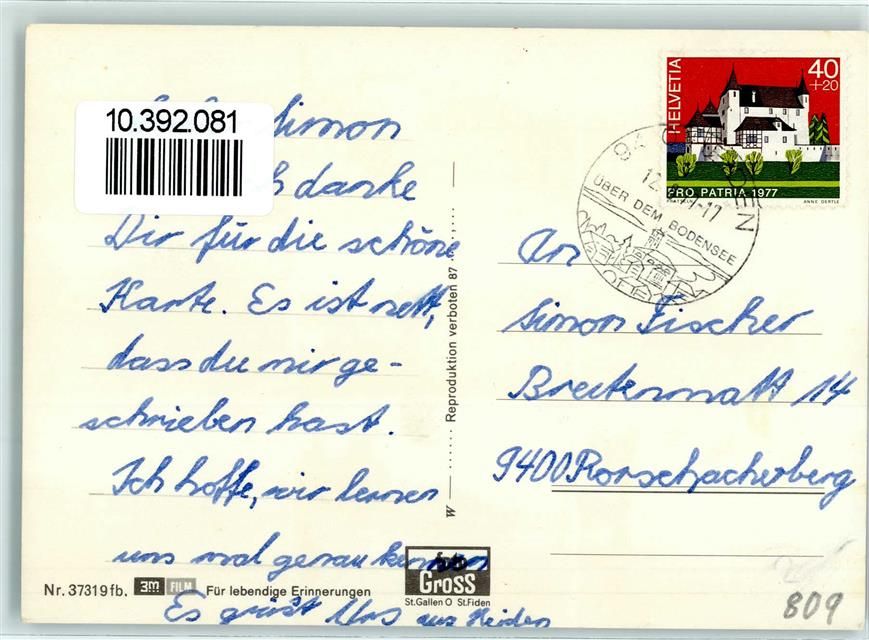 10.392.081
Simon
danke
Dir für die schöne
Karte. Es ist nett,
dass du mir ge-
schrieben hast.
Ich hoffe, wir lernen
uns mal genau kennen
Es grüsst Urs aus Heiden
Nr. 37319fb. 3m FILM Für lebendige Erinnerungen
foto
Gross
St.Gallen O St.Fiden
W Reproduktion verboten 87
HELVETIA
40
+20
PRO PATRIA 1977
PRATTELN ANNE OERTLE
ÜBER DEM BODENSEE
An
Simon Fischer
Breitenmatt 14
9400 Rorschacherberg
809